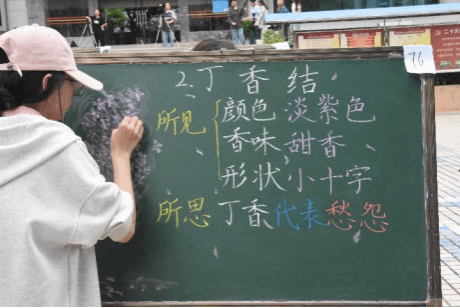 76
2.丁香结
所见 颜色 淡紫色
香味 甜香
形状 小十字
所思 丁香代表愁怨